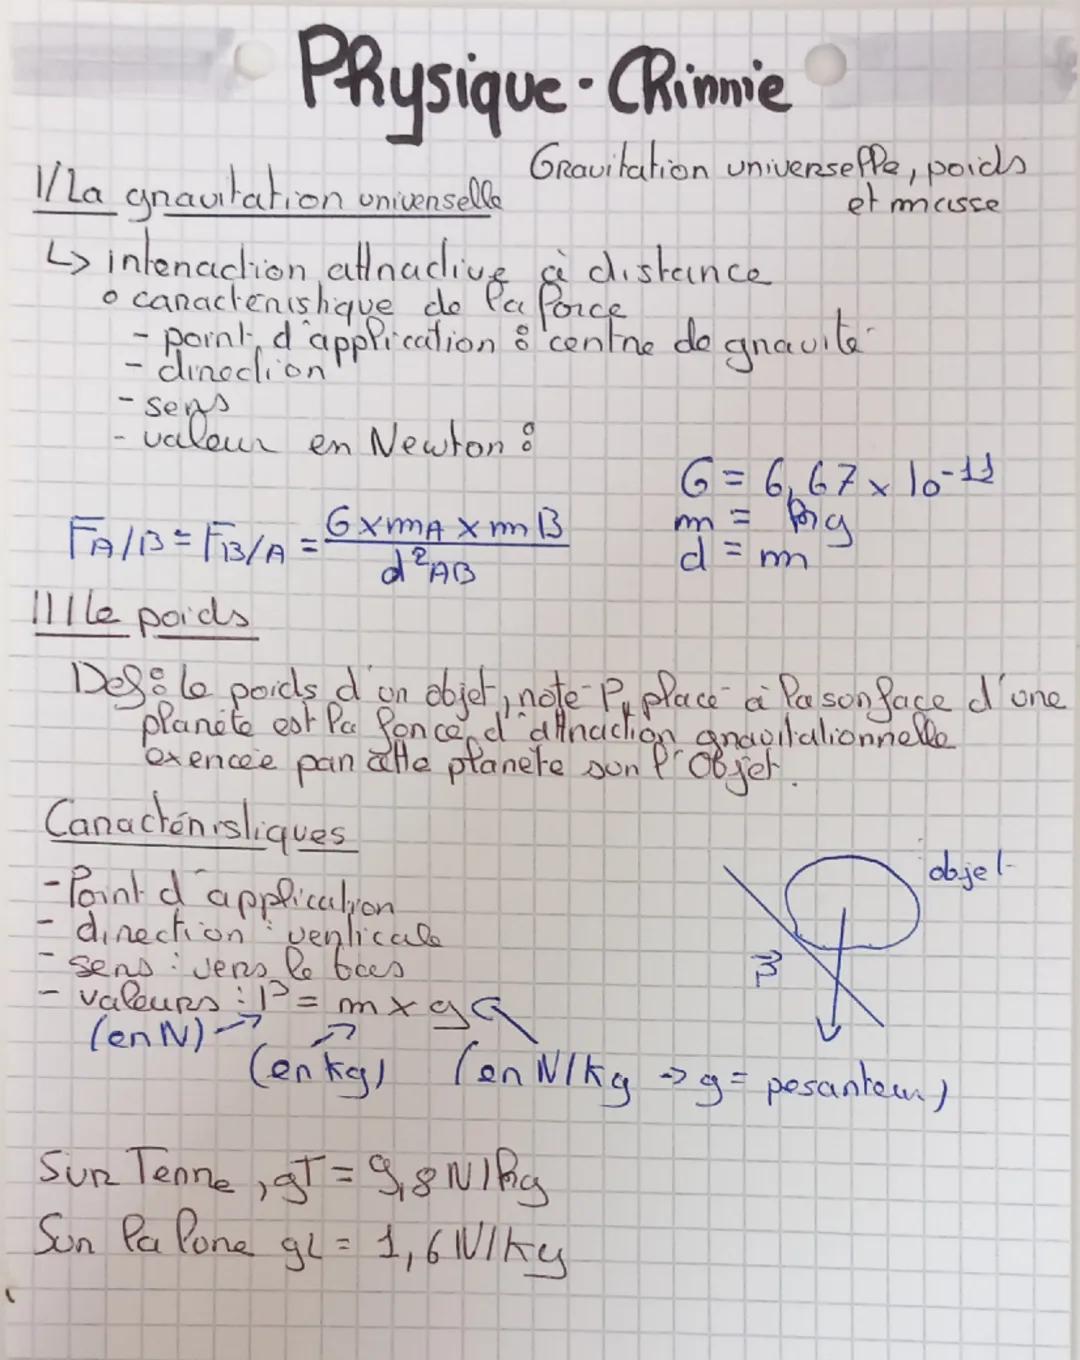 Physique-Chimie
Gravitation universelle, poids
et masse
I/ La gravitation universelle
↳ interaction attractive à distance
o caractéristique de la force
- point d'application : centre de gravité
- direction
- sens
- valeur en Newton :
G = 6,67 x 10-11
m = kg
d = m
FA/B = FB/A = G x mA x mB
d²AB
II/ le poids
Def : le poids d'un objet, noté P, placé à la surface d'une
planète est la force d'attraction gravitationnelle
exercée par cette planète sur l'objet.
Caractéristiques
- Point d'application
- direction : verticale
- sens : vers le bas
- valeurs : P = m x g
(en N)
(en kg) (en N/kg → g = pesanteur)
objet
P
Sur Terre, gT = 9,8 N/kg
Sur la lune gL = 1,6 N/kg